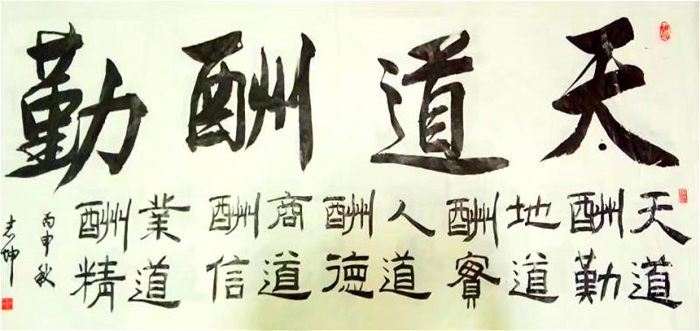 天道酬勤
天道
酬勤
地道
酬
人道
酬德
商道
酬信
業道
酬精
丙申秋
志坤